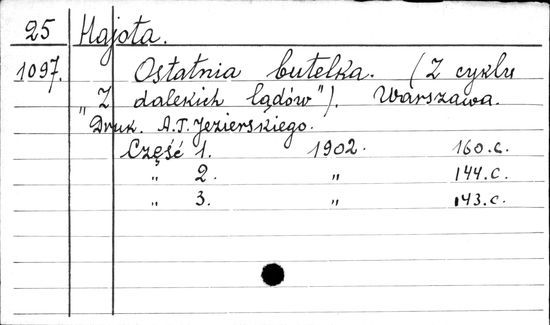 25 Hajota.
1097. Ostatnia butelka. (Z cyklu
„Z dalekich lądów"). Warszawa.
Druk. A.T. Jezierskiego.
Część 1. 1902. 160.c.
„ 2. „ 144.c.
„ 3. „ 143.c.